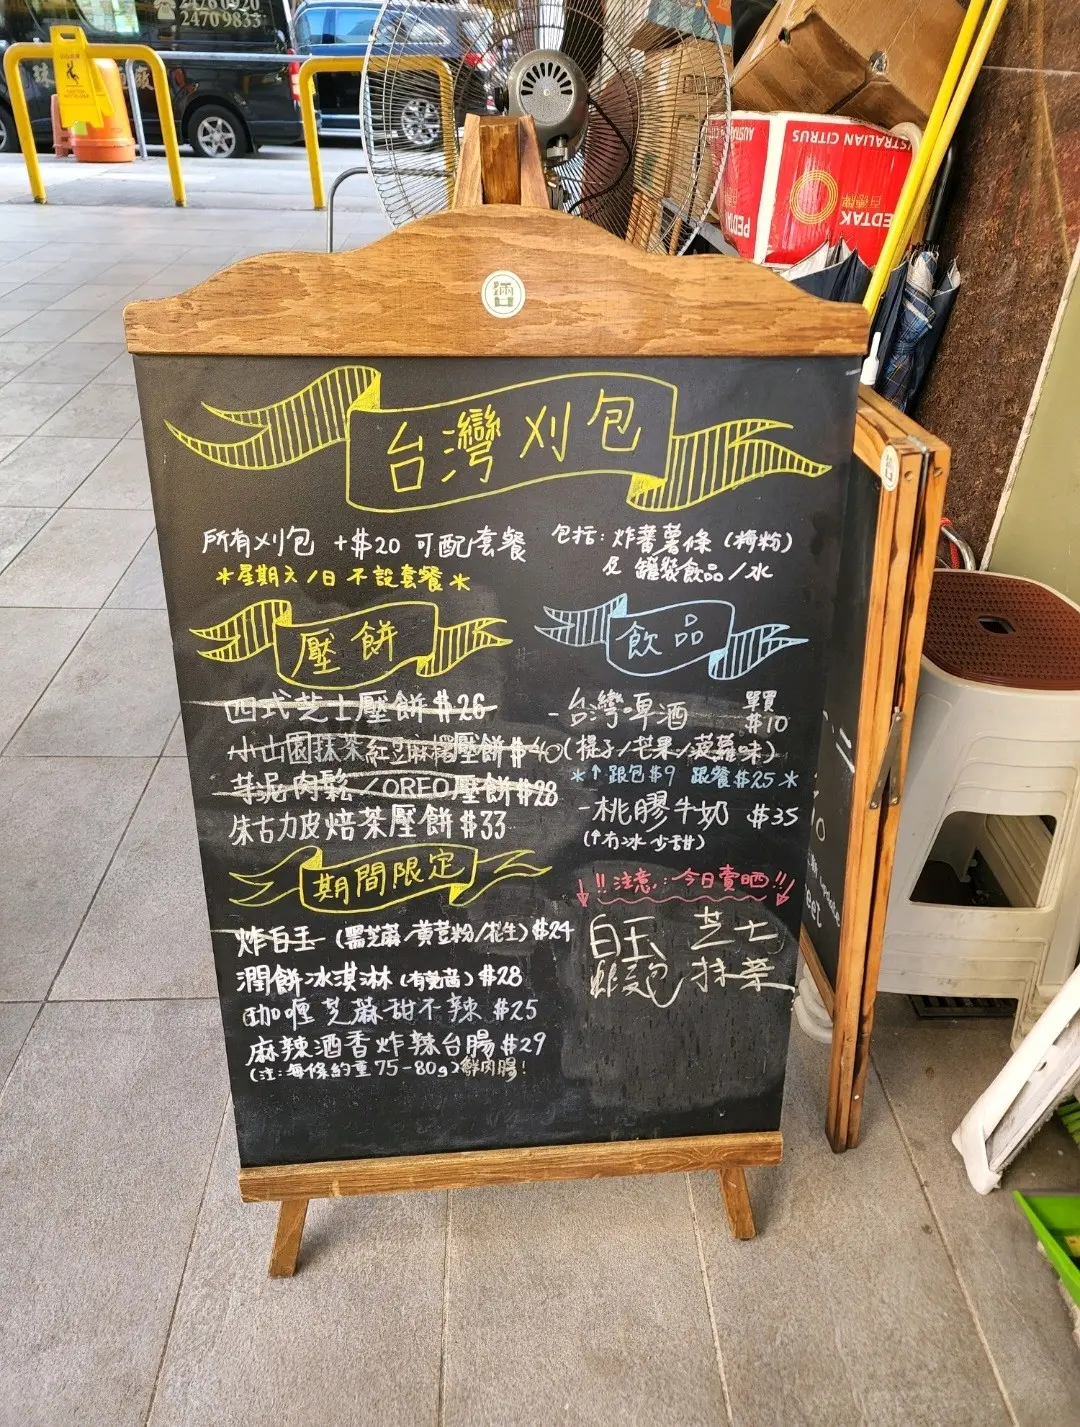 2476 0920
2470 9833
AUSTRALIAN CITRUS
台灣刈包
所有刈包 +$20 可配套餐
*星期六/日不設套餐*
包括: 炸蕃薯條 (梅粉)
及 罐裝飲品/水
壓餅
四式芝士壓餅 $26
小山園抹茶紅豆麻糬壓餅 $40
芋泥肉鬆/OREO壓餅 $28
朱古力皮焙茶壓餅 $33
飲品
-台灣啤酒 單買 $10
(提子/芒果/菠蘿味)
*↑ 跟包$9 跟餐$25*
-桃膠牛奶 $35
(↑冇冰 少甜)
期間限定
炸白玉 (黑芝蔴/黄荳粉/花生) $24
潤餅冰淇淋 (有芫茜) $28
咖喱芝蔴甜不辣 $25
麻辣酒香炸辣台腸 $29
(注: 每條約重 75-80g) 鮮肉腸!
↓!!注意: 今日賣晒!!↓
白玉 芝士
炸包 抹茶